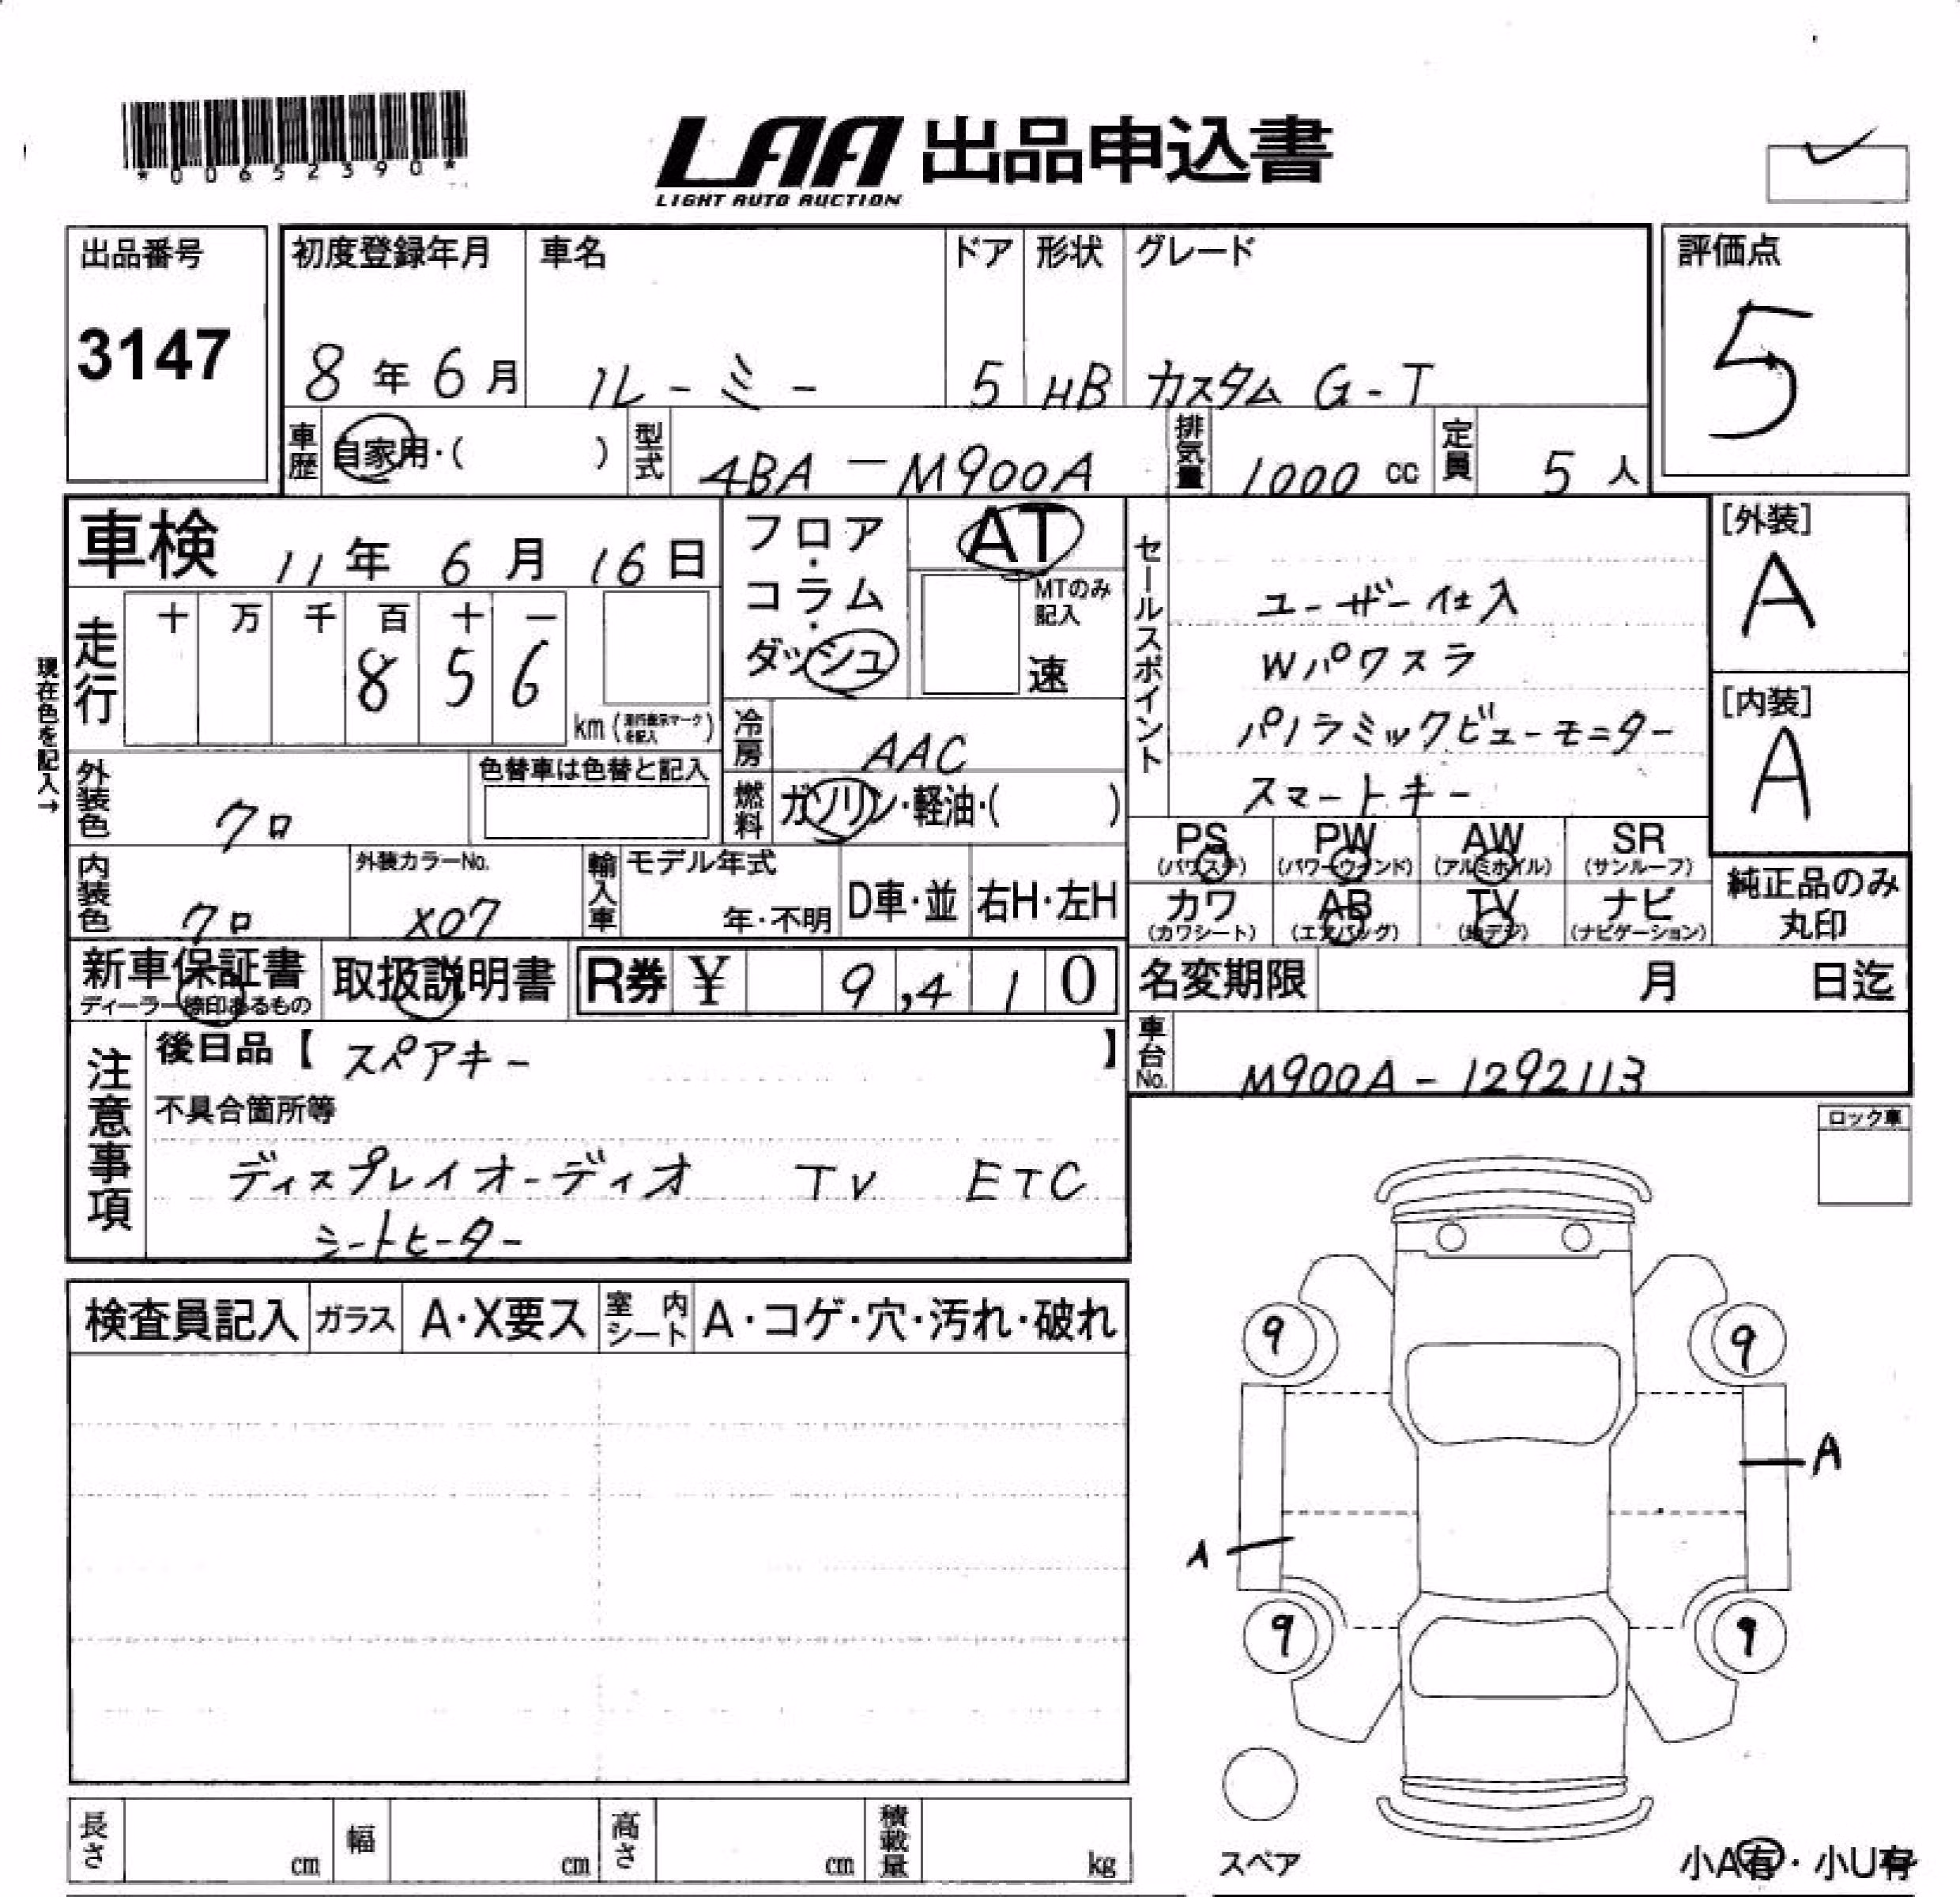 *00652390*
LAA 出品申込書
LIGHT AUTO AUCTION
出品番号
3147
初度登録年月
8年6月
車名
ルーミー
ドア
5
形状
HB
グレード
カスタム G-T
評価点
5
車歴 自家用・( )
型式 4BA-M900A
排気量 1000 cc
定員 5 人
車検 11年 6月 16日
現在色を記入→
走行
十 万 千 百 十 一
8 5 6
km
フロア・コラム・ダッシュ
AT
MTのみ記入
速
冷房 AAC
燃料 ガソリン・軽油・( )
セールスポイント
ユーザー仕入
Wパワスラ
パノラミックビューモニター
スマートキー
[外装]
A
[内装]
A
外装色 クロ
色替車は色替と記入
内装色 クロ
外装カラーNo.
X07
輸入車
モデル年式
年・不明
D車・並
右H・左H
PS (パワステ)
PW (パワーウィンド)
AW (アルミホイル)
SR (サンルーフ)
カワ (カワシート)
AB (エアバッグ)
TV (地デジ)
ナビ (ナビゲーション)
純正品のみ
丸印
新車保証書
ディーラー捺印あるもの
取扱説明書
R券 ¥ 9,410
名変期限 月 日迄
車台No. M900A-1292113
注意事項
後日品【 スペアキー 】
不具合箇所等
ディスプレイオーディオ TV ETC
シートヒーター
ロック車
検査員記入
ガラス
A・X要ス
室内シート
A・コゲ・穴・汚れ・破れ
9
9
A
A
9
9
スペア
小A有・小U有
長さ cm
幅 cm
高さ cm
積載量 kg